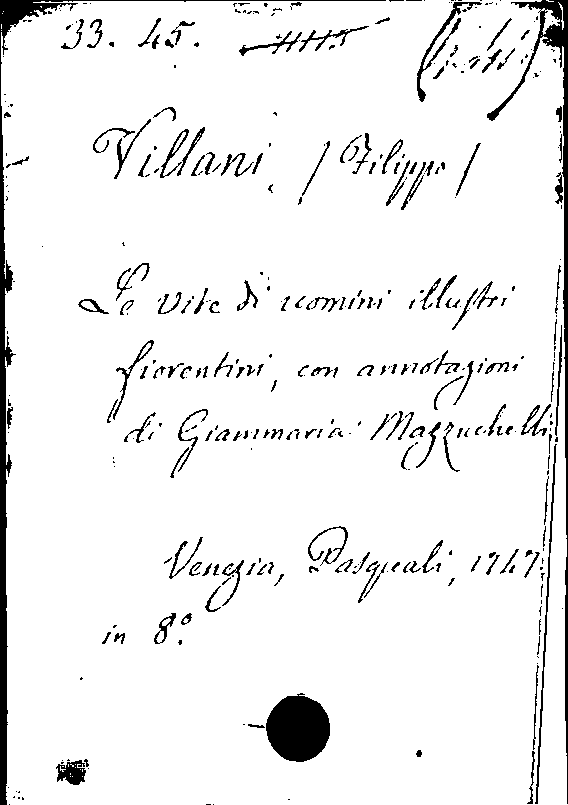 33. 45.
Villani /Filippo/
Le vite di uomini illustri
fiorentini, con annotazioni
di Giammaria Mazzuchelli.
Venezia, Pasquali, 1747.
in 8º.